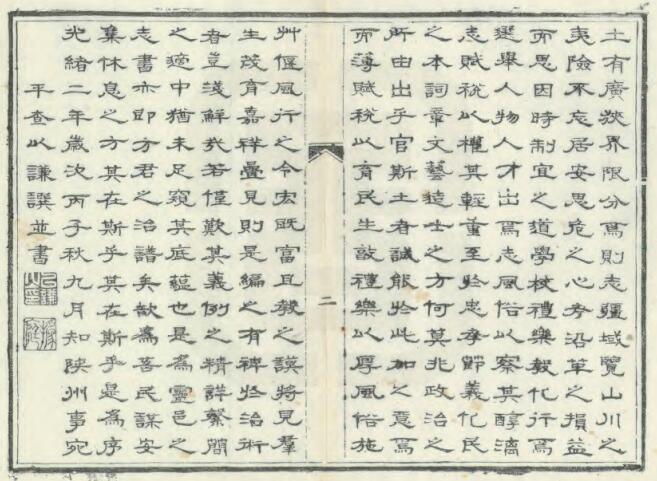 土有廣狹界限分焉則志疆域覽山川之
夷險不忘居安思危之心考沿革之損益
而思因時制宜之道學校禮樂敎化行焉
選舉人物人才出焉志風俗以察其醇漓
志賦稅以權其輕重至於忠孝節義化民
之本詞章文藝造士之方何莫非政治之
所由出乎官斯土者誠能於此加之意焉
而薄賦稅以育民生敦禮樂以厚風俗施
二
艸偃風行之令宏既富且敎之謨將見羣
生茂育嘉祥疊見則是編之有裨於治術
者豈淺鮮哉若僅歎其義例之精詳繁簡
之適中猶未足窺其底蘊也是爲靈邑之
志書亦即方君之治譜矣欲爲吾民謀安
集休息之方其在斯乎其在斯乎是爲序
光緒二年歲次丙子秋九月知陝州事宛
平查以謙譔並書